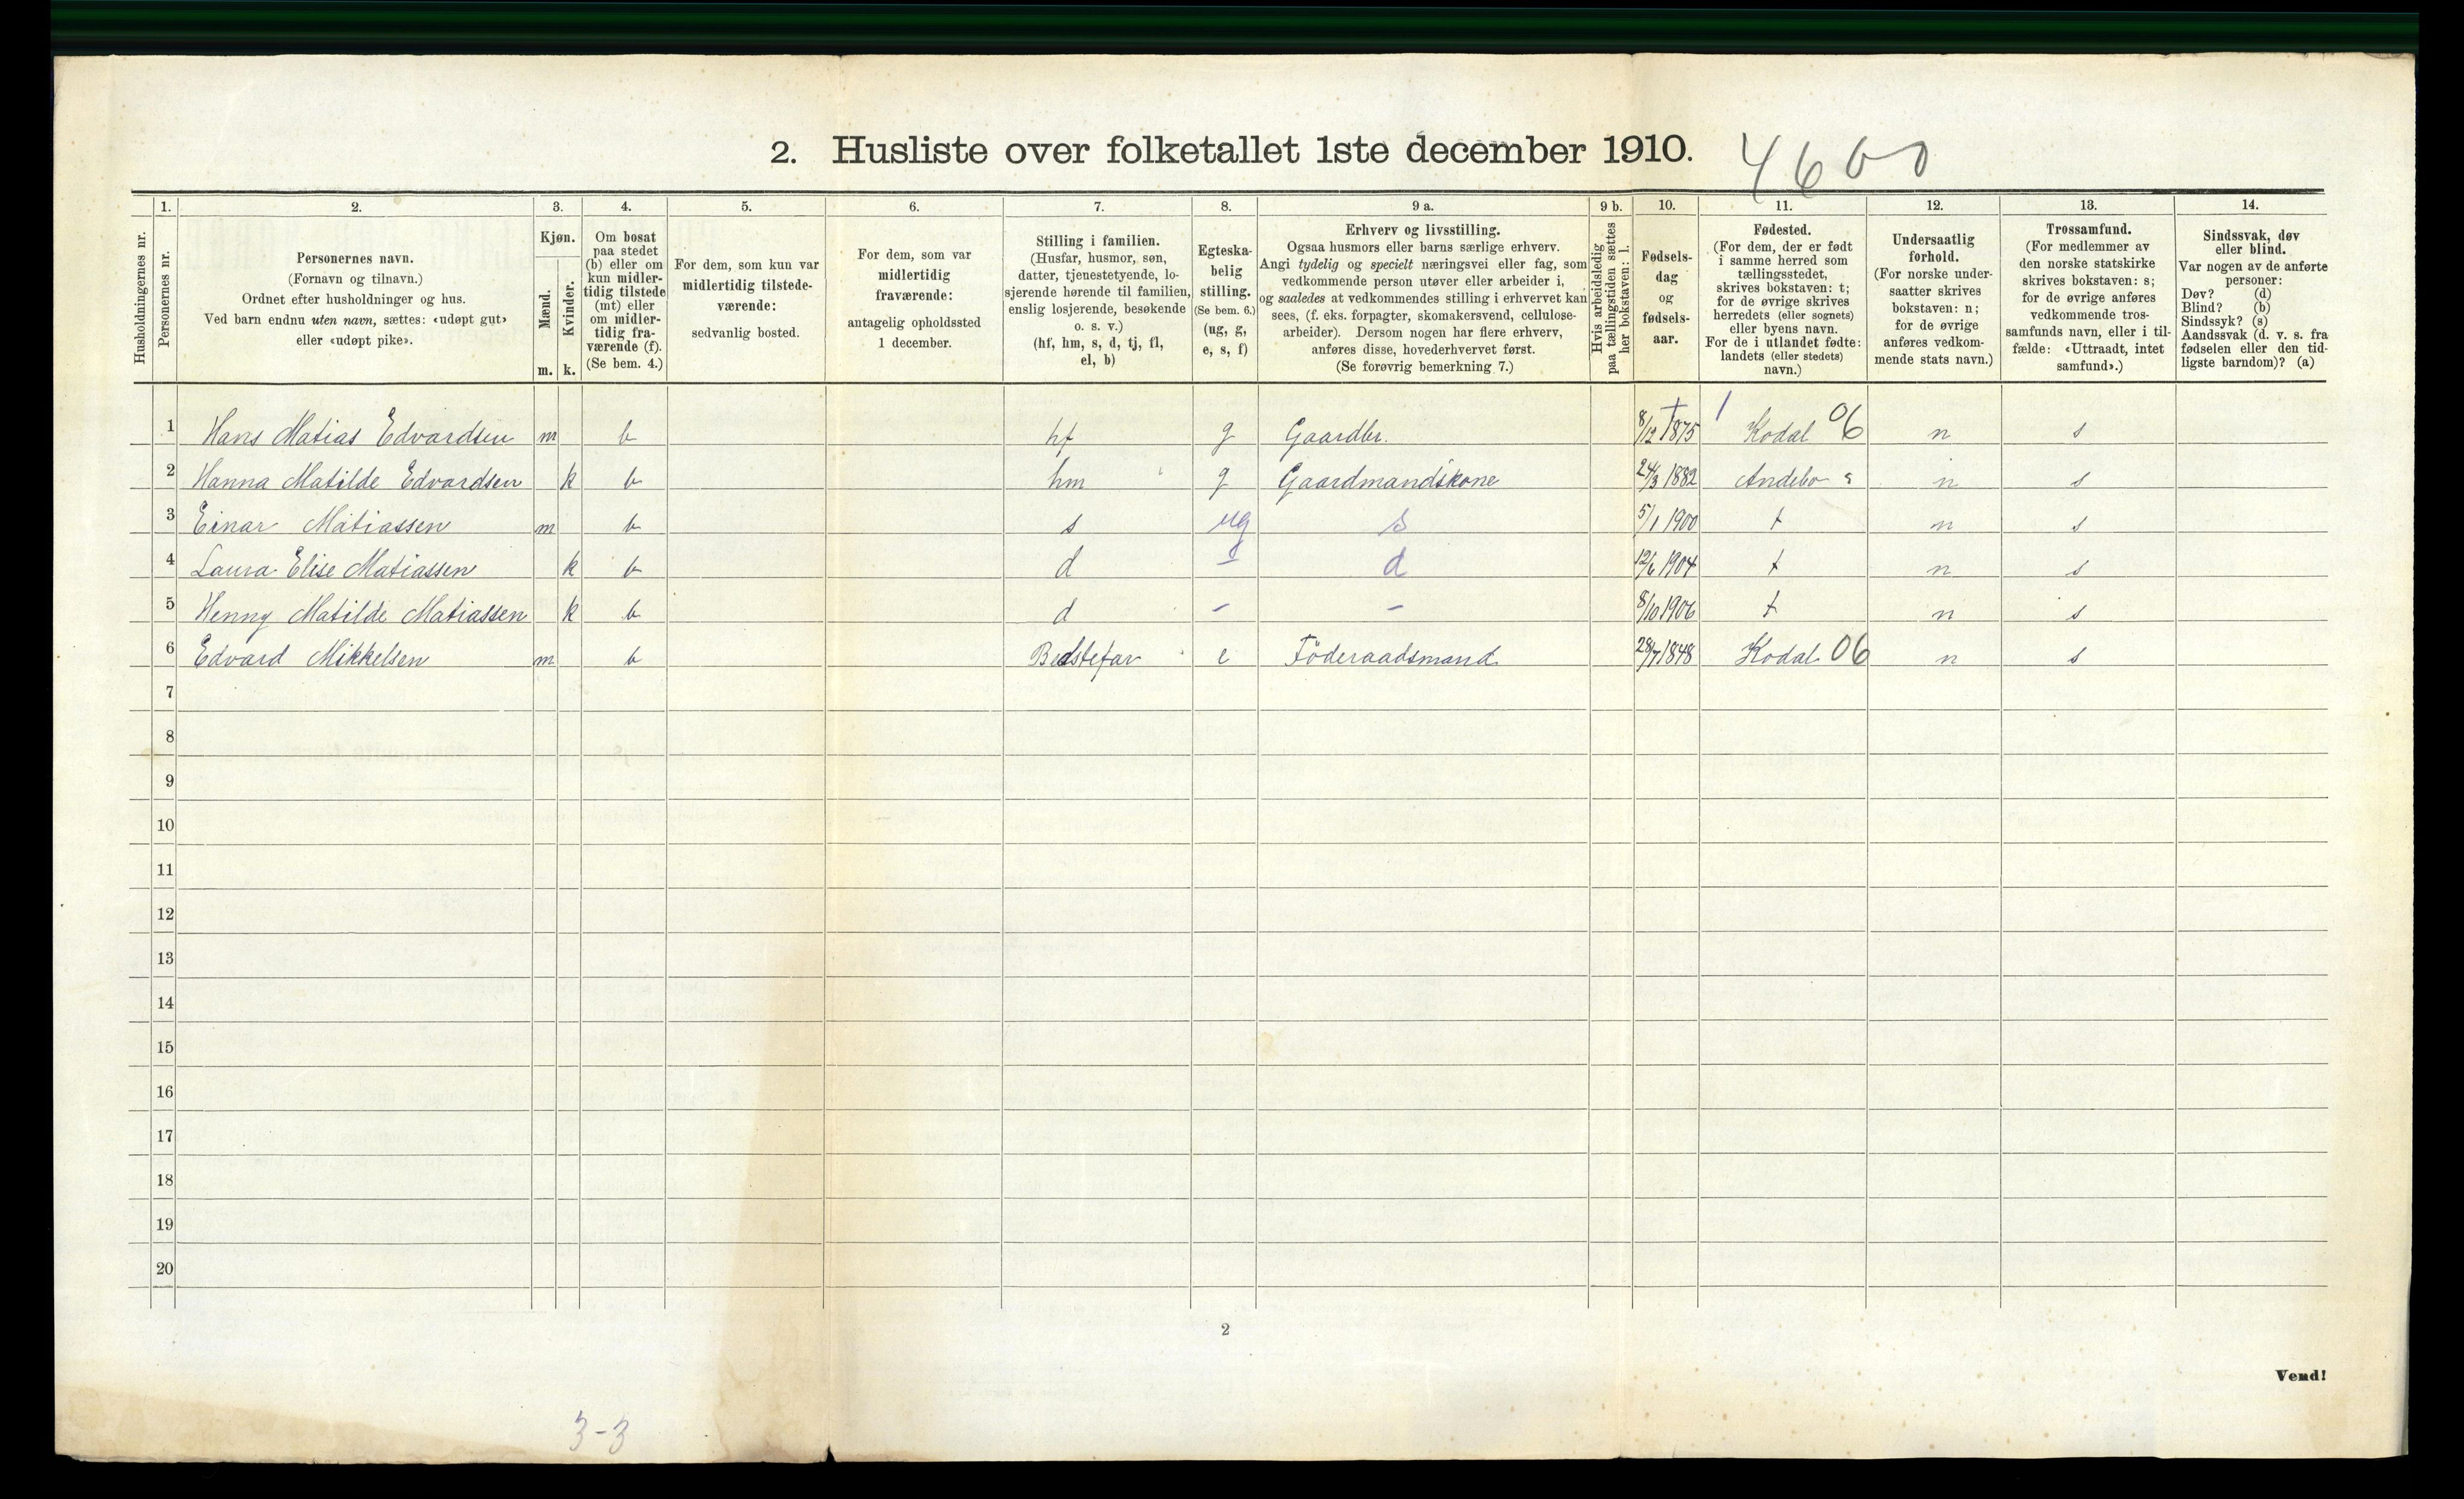 2. Husliste over folketallet 1ste december 1910. 4600
1. 2. 3. 4. 5. 6. 7. 8. 9 a. 9 b. 10. 11. 12. 13. 14.
Husholdningernes nr.
Personernes nr.
Personernes navn.
(Fornavn og tilnavn.)
Ordnet efter husholdninger og hus.
Ved barn endnu uten navn, sættes: «udøpt gut»
eller «udøpt pike».
Kjøn.
Mænd.
Kvinder.
m. k.
Om bosat
paa stedet
(b) eller om
kun midler-
tidig tilstede
(mt) eller
om midler-
tidig fra-
værende (f).
(Se bem. 4.)
For dem, som kun var
midlertidig tilstede-
værende:
sedvanlig bosted.
For dem, som var
midlertidig
fraværende:
antagelig opholdssted
1 december.
Stilling i familien.
(Husfar, husmor, søn,
datter, tjenestetyende, lo-
sjerende hørende til familien,
enslig losjerende, besøkende
o. s. v.)
(hf, hm, s, d, tj, fl,
el, b)
Egteska-
belig
stilling.
(Se bem. 6.)
(ug, g,
e, s, f)
Erhverv og livsstilling.
Ogsaa husmors eller barns særlige erhverv.
Angi tydelig og specielt næringsvei eller fag, som
vedkommende person utøver eller arbeider i,
og saaledes at vedkommendes stilling i erhvervet kan
sees, (f. eks. forpagter, skomakersvend, cellulose-
arbeider). Dersom nogen har flere erhverv,
anføres disse, hovederhvervet først.
(Se forøvrig bemerkning 7.)
Hvis arbeidsledig
paa tællingstiden sættes
her bokstaven: l.
Fødsels-
dag
og
fødsels-
aar.
Fødested.
(For dem, der er født
i samme herred som
tællingsstedet,
skrives bokstaven: t;
for de øvrige skrives
herredets (eller sognets)
eller byens navn.
For de i utlandet fødte:
landets (eller stedets)
navn.)
Undersaatlig
forhold.
(For norske under-
saatter skrives
bokstaven: n;
for de øvrige
anføres vedkom-
mende stats navn.)
Trossamfund.
(For medlemmer av
den norske statskirke
skrives bokstaven: s;
for de øvrige anføres
vedkommende tros-
samfunds navn, eller i til-
fælde: «Uttraadt, intet
samfund».)
Sindssvak, døv
eller blind.
Var nogen av de anførte
personer:
Døv? (d)
Blind? (b)
Sindssyk? (s)
Aandssvak (d. v. s. fra
fødselen eller den tid-
ligste barndom)? (a)
1 Hans Matias Edvardsen m b hf g Gaardbr. 8/12 1875 Kodal 06 n s
2 Hanna Matilde Edvardsen k b hm g Gaardmandskone 24/3 1882 Andebo n s
3 Einar Matiassen m b s ug s 5/1 1900 t n s
4 Laura Elise Matiassen k b d - d 12/6 1904 t n s
5 Henny Matilde Matiassen k b d - - 8/10 1906 t n s
6 Edvard Mikkelsen m b Bedstefar e Föderaadsmand 28/7 1848 Kodal 06 n s
7
8
9
10
11
12
13
14
15
16
17
18
19
20
2
Vend!
3-3